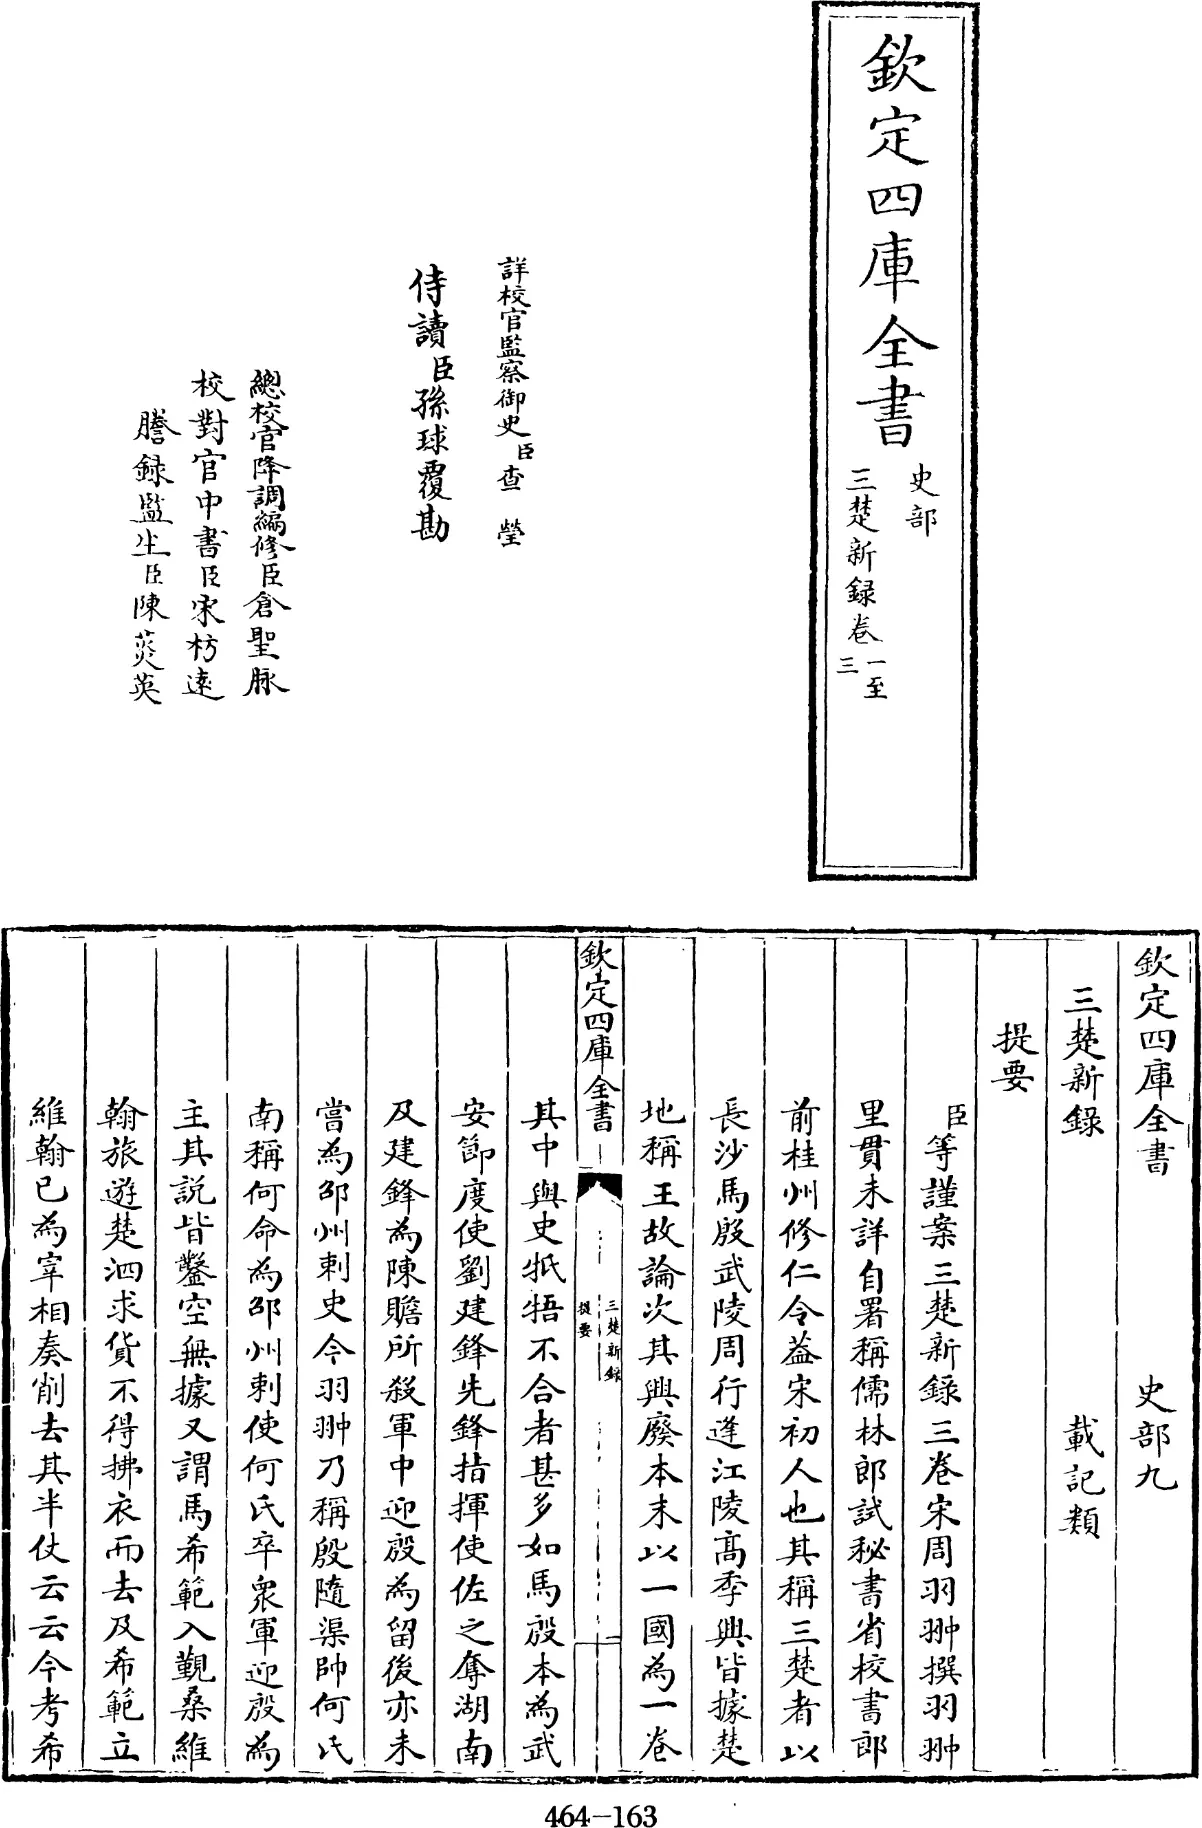 欽定四庫全書
史部
三楚新錄卷一至三
詳校官監察御史臣查瑩
侍讀臣孫球覆勘
總校官降調編修臣倉聖脉
校對官中書臣宋枋遠
謄錄監生臣陳英
欽定四庫全書 史部九
三楚新錄 載記類
提要
臣等謹案三楚新錄三卷宋周羽翀撰羽翀
里貫未詳自署稱儒林郎試秘書省校書郎
前桂州修仁令葢宋初人也其稱三楚者以
長沙馬殷武陵周行逢江陵高季興皆據楚
地稱王故論次其興廢本末以一國為一卷
欽定四庫全書
三楚新錄
提要
其中與史牴牾不合者甚多如馬殷本為武
安節度使劉建鋒先鋒指揮使佐之奪湖南
及建鋒為陳贍所殺軍中迎殷為留後亦未
當為邵州刺史今羽翀乃稱殷隨渠帥何氏
南稱何命為邵州刺使何氏卒衆軍迎殷為
主其說皆鑿空無據又謂馬希範入覲桑維
翰旅遊楚泗求貨不得拂衣而去及希範立
維翰已為宰相奏削去其半仗云云今考希
464-163